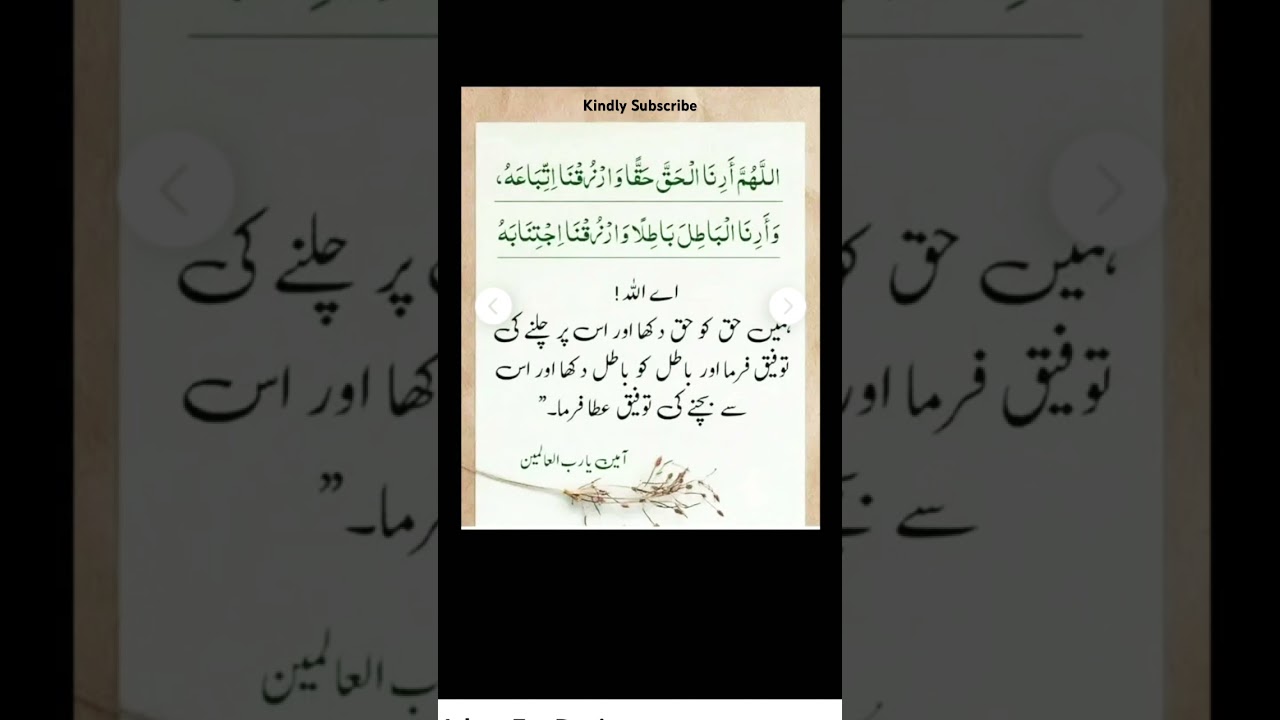 Kindly Subscribe
اللَّهُمَّ أَرِنَا الْحَقَّ حَقًّا وَارْزُقْنَا اِتِّبَاعَهُ،
وَأَرِنَا الْبَاطِلَ بَاطِلًا وَارْزُقْنَا اِجْتِنَابَهُ
اے اللہ !
ہمیں حق کو حق دکھا اور اس پر چلنے کی
توفیق فرما اور باطل کو باطل دکھا اور اس
سے بچنے کی توفیق عطا فرما۔”
آمین یا رب العالمین